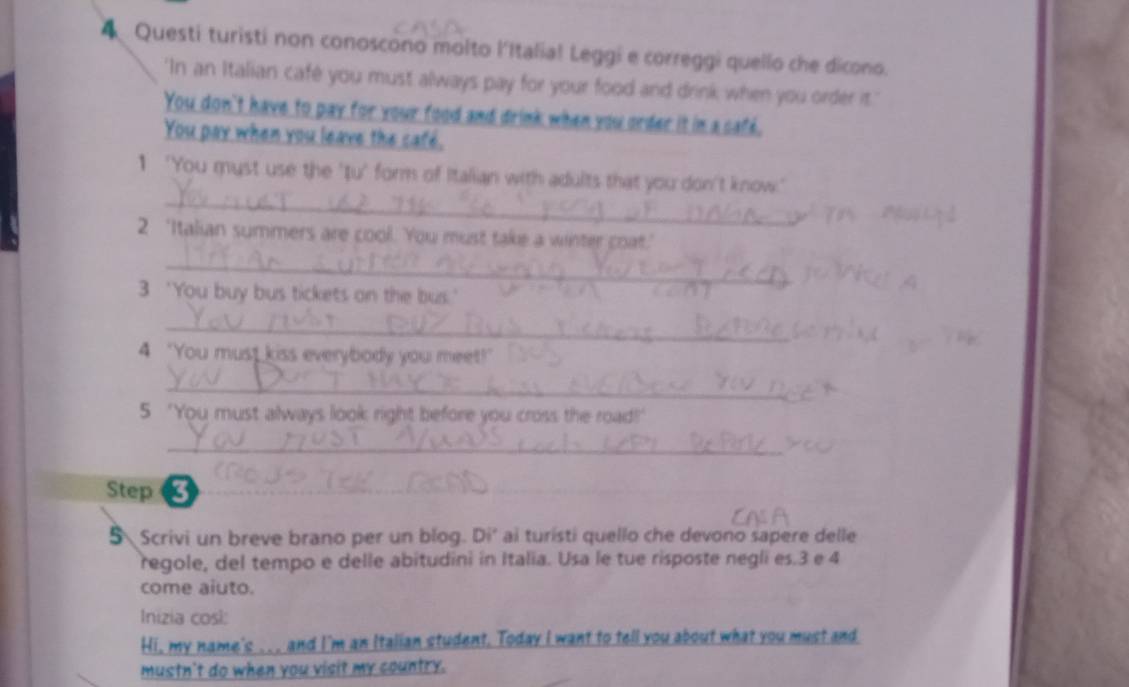 CASA
4 Questi turisti non conoscono molto l'Italia! Leggi e correggi quello che dicono.
'In an Italian café you must always pay for your food and drink when you order it.'
You don't have to pay for your food and drink when you order it in a café.
You pay when you leave the café.
1 'You must use the 'tu' form of Italian with adults that you don't know.'
You must
2 'Italian summers are cool. You must take a winter coat.'
3 'You buy bus tickets on the bus.'
You must buy bus tickets before
4 'You must kiss everybody you meet!'
You don't have to kiss you meet
5 'You must always look right before you cross the road!'
You must always before you
cross road
Step 3
CASA
5 Scrivi un breve brano per un blog. Di' ai turisti quello che devono sapere delle
regole, del tempo e delle abitudini in Italia. Usa le tue risposte negli es.3 e 4
come aiuto.
Inizia così:
Hi, my name's ... and I'm an Italian student. Today I want to tell you about what you must and
mustn't do when you visit my country.